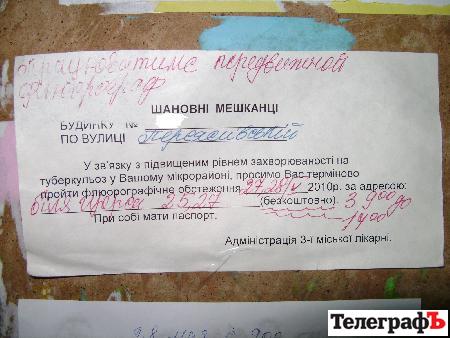 працюватиме передвижной
флюорограф
ШАНОВНІ МЕШКАНЦІ
БУДИНКУ №
ПО ВУЛИЦІ
У зв'язку з підвищеним рівнем захворюваності на
туберкульоз у Вашому мікрорайоні, просимо Вас терміново
пройти флюорографічне обстеження 27,28/V 2010р. за адресою:
біля 25,27 (безкоштовно). З 900 до
1400
При собі мати паспорт.
Адміністрація 3-ї міської лікарні.
ТелеграфЪ